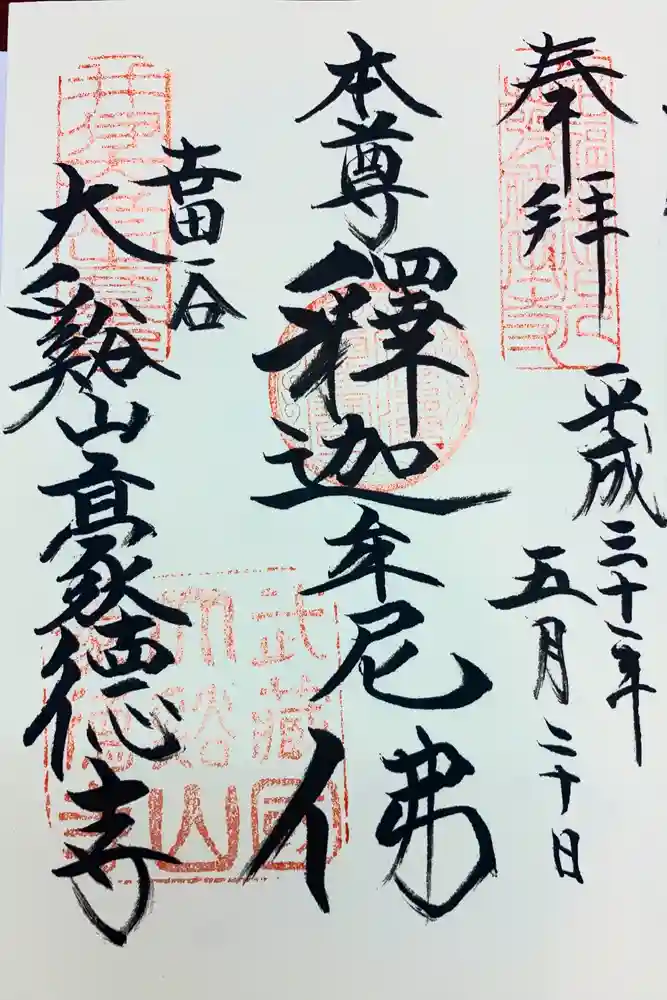 奉拝
平成三十一年
五月二十日
本尊
釋迦牟尼佛
世田谷
大谿山豪德寺
武藏國
大谿山